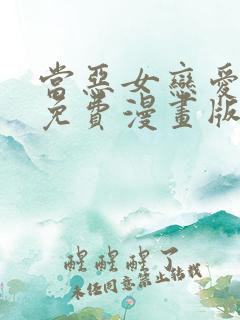 當惡女戀愛
免費漫畫版
醒醒醒了
未經同意禁止轉載